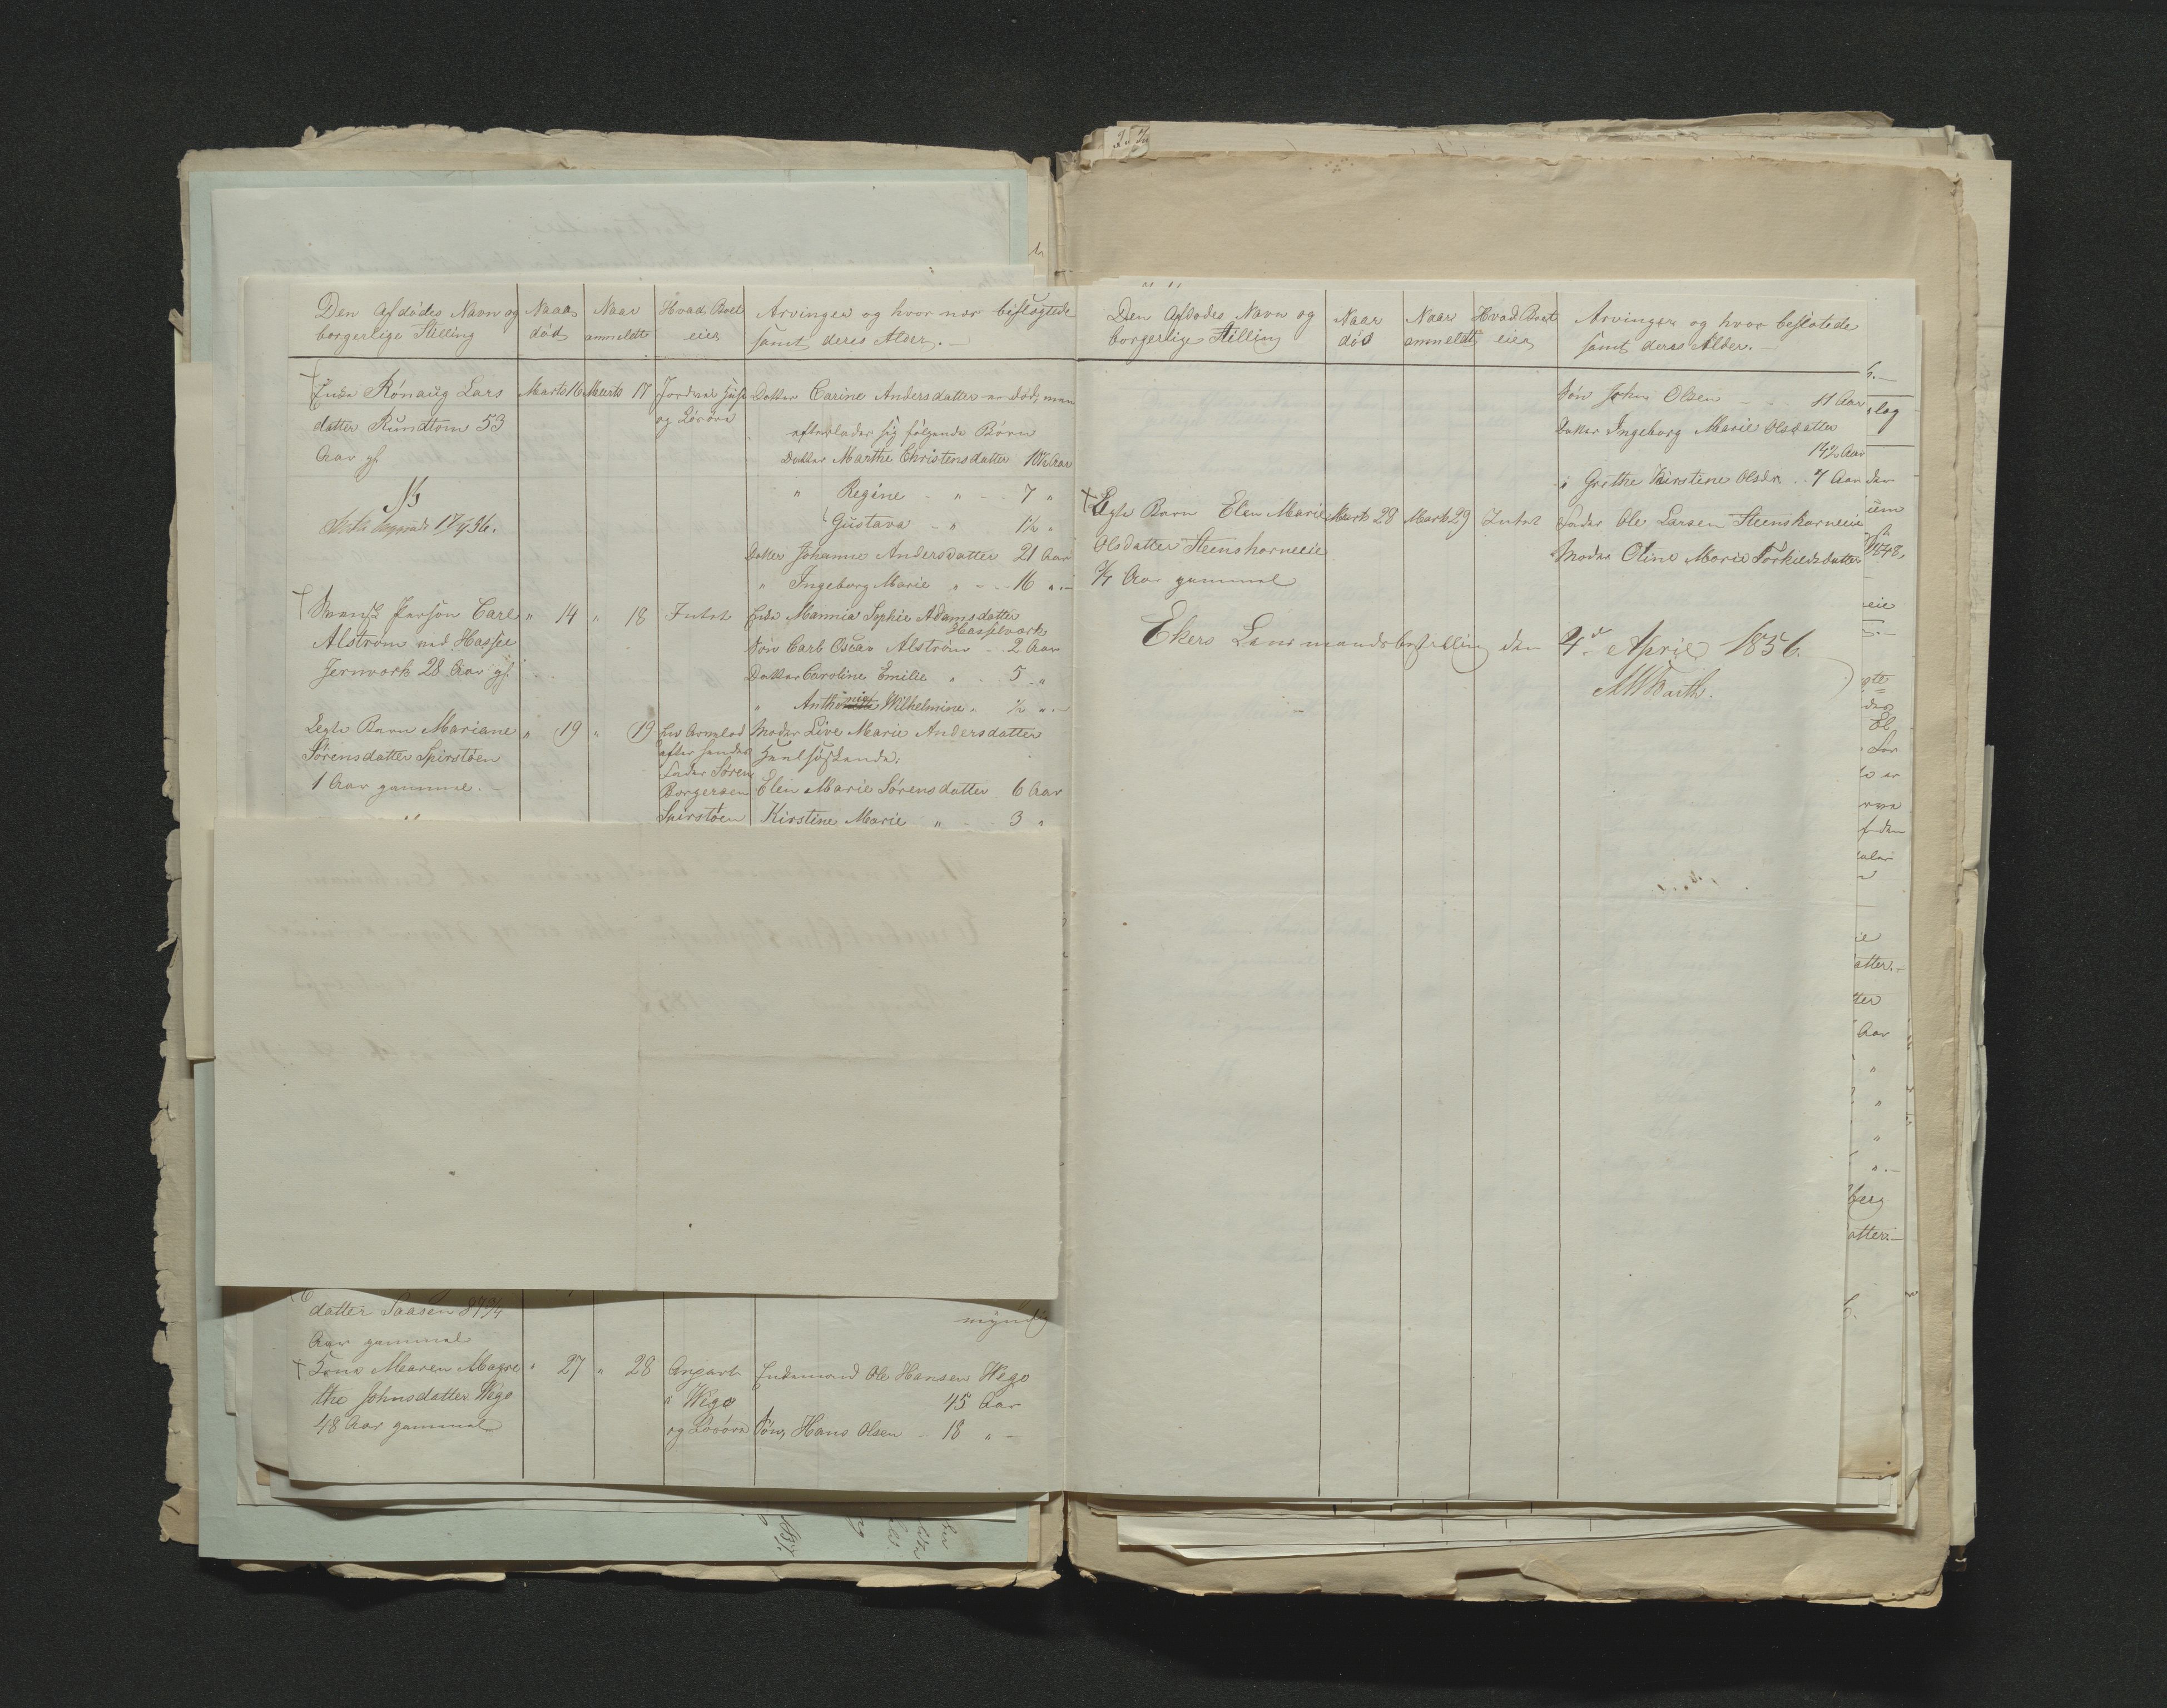 Den Afdødes Navn og borgerlige Stilling
Naar død
Naar anmeldt
Hvad Boet eier
Arvinger og hvor nær beslægtede samt deres Alder.
Enke Rónaug Lars Marts 16 Marts 17 Jordvei Huse Datter Carine Andersdatter er død, men
datter Rundtom 53 og Løsøre efterlader sig følgende Børn
Aar gl. Datter Marthe Christensdatter 10½ Aar
" Regine - " - - 7 "
Gustava - " 1½ "
Datter Johanne Andersdatter 21 Aar
" Ingeborg Marie " - - 16 " -
Svensk Person Carl " 14 " 18 Intet Enke Mannia Sophie Adamsdatter
Hasselverk
Alstrøm ved Hassel Søn Carl Oscar Alstrøm - 2 Aar
Jernverk 28 Aar gl. Datter Caroline Emilie " - 5 "
" Anthonie Wilhelmine " ½ " -
Legte Barn Mariane " 19 " 19 Moder Live Marie Andersdatter
Sørensdatter Spirstøen efter sandø Heelsøskende:
Fader Søren
1 Aar gammel. - Borgersen Elen Marie Sørensdatter 6 Aar
Spirstøen Kirstine Marie " - - 3 "
datter Saasen
Aar gammel myndig
Kone Maren Magre " 27 " 28 Angart Enkemand Ole Hansen Wego
the Johnsdatter Wego i Wego 45 Aar
48 Aar gammel og Løsøre Søn, Hans Olsen - 18 " -
Den Afdødes Navn og borgerlige Stilling
Naar død
Naar anmeldt
Hvad Boet eier
Arvinger og hvor beslætede samt deres Alder. -
Søn John Olsen - - 11 Aar
Datter Ingeborg Marie Olsdatter
14½ Aar
" Grethe Kirstine Olsdr. . 7 Aar
Legte Barn Elen Marie Marts 28 Marts 29 Intet Fader Ole Larsen Steenskorneeie
Olsdatter Steenskorneeie Moder Oline Marie Torkildsdatter
¾ Aar gammel
Ekers Lensmandsbestilling den 4de April 1856.